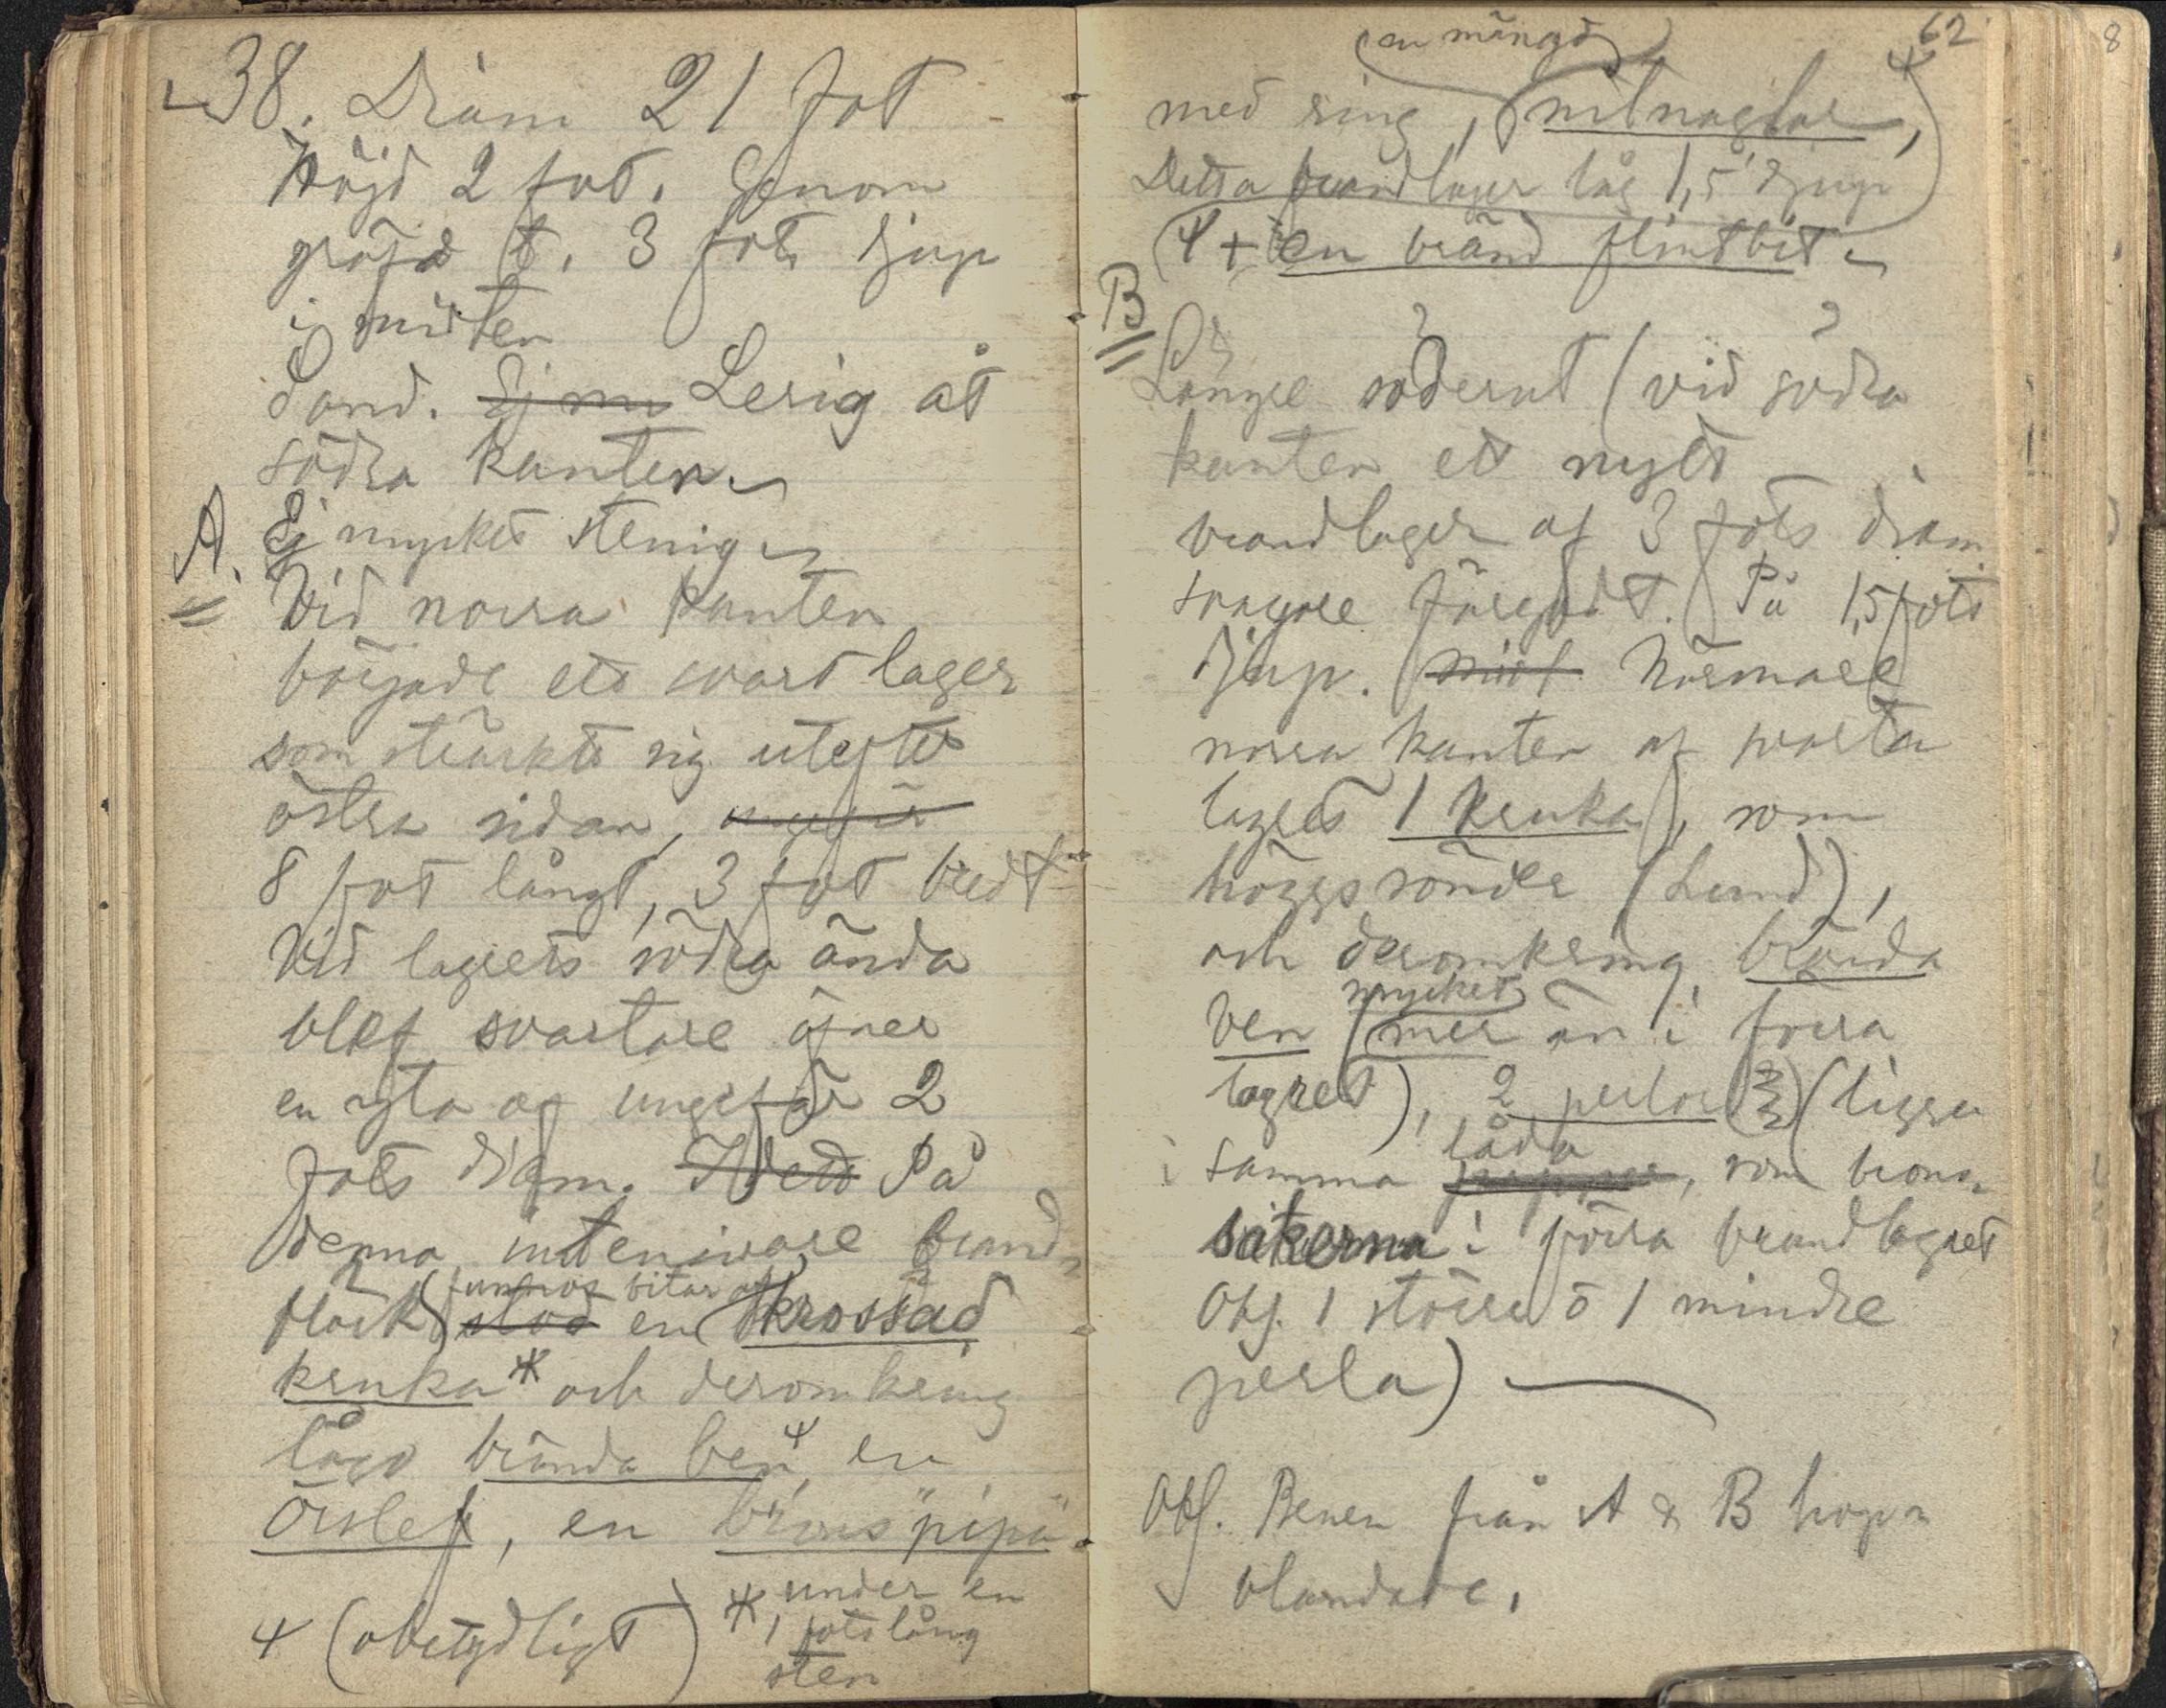 38. Diam 21 fot
Höjd 2 fot. Genom
gräfd t. 3 fots djup
i midten
Sand. Ej my Lerig åt
södra kanten
A. Ej mycket stenig
Vid norra kanten
började ett svart lager
som stärkte sig utefter
östra sidan, ungefär
8 fot långt, 3 fot bredt
Vid lagrets södra ända
blef svartare öfver
en yta af ungefär 2
fots diam. På
denna intensivare brand
fläck (jumros bitar af)
stod en krossad
kruka* och deromkring
lågo brända ben, en
Örslef, en brons "pipa"
(obetydligt)
* under en
1 fots lång
sten
62
8
en mängd
med ring, nitnaglar,
Detta brandlager låg 1,5' djup
+ en bränd flintbit
B
Längre söderut (vid södra
kanten ett nytt
brandlager af 3 fots diam
svagare färgadt. På 1,5 fots
djup. Närmare
norra kanten af svarta
lagret 1 kruka, som
höggs sönder (Lund),
och deromkring brända
ben (mycket mer än i förra
lagret), 2 perlor (ligga
i samma låda, som brons
sakerna i förra brandlagret
Obs. 1 större o 1 mindre
perla)
Obs. Benen från A & B hop
blandade.